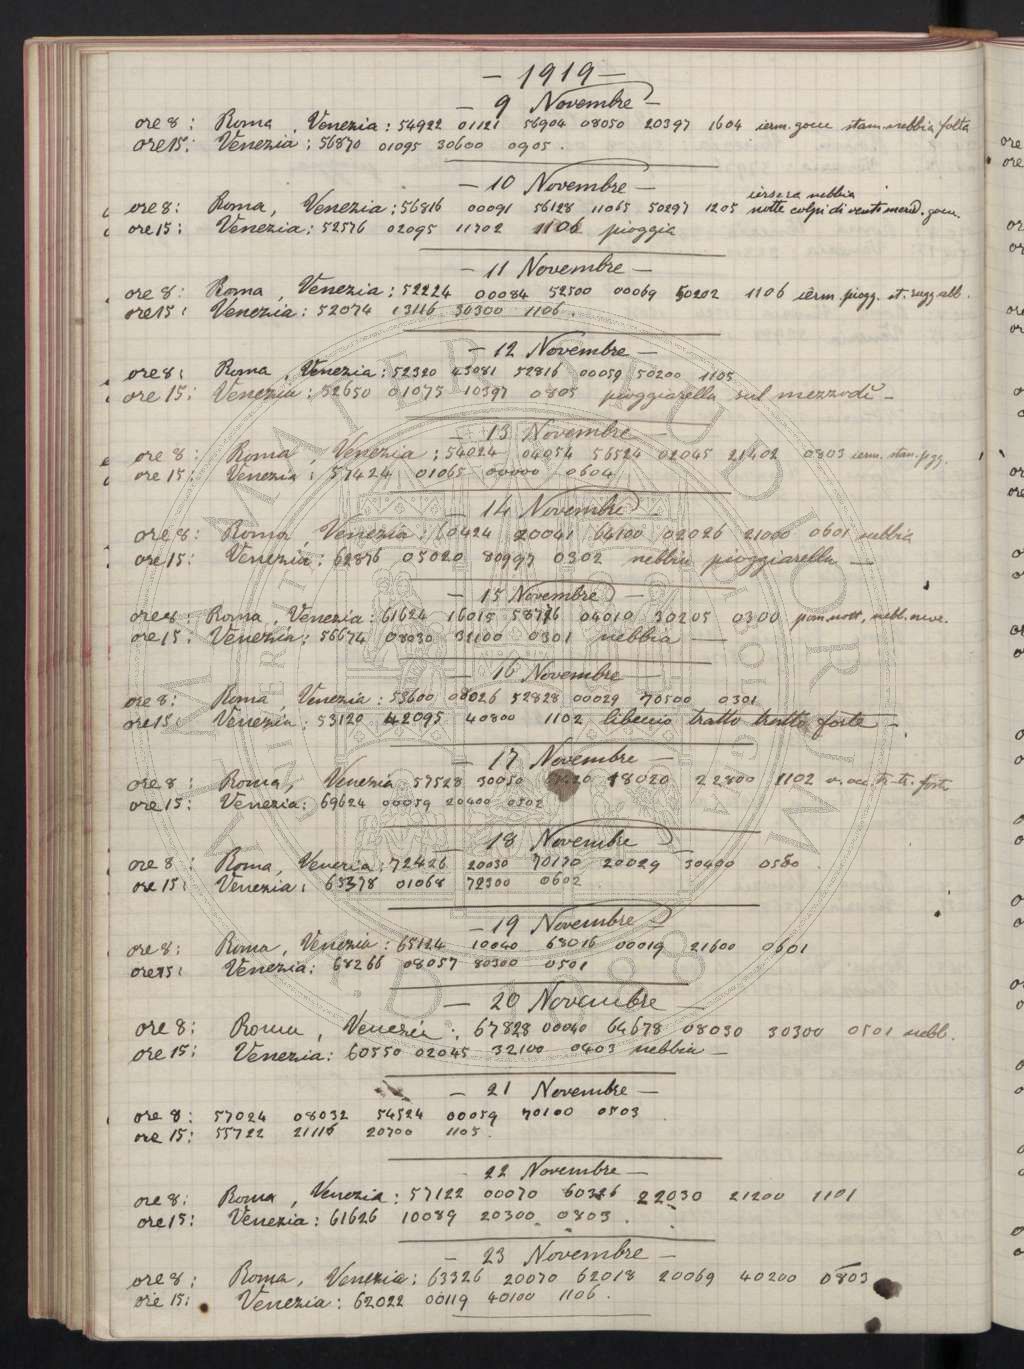 — 1919 —
— 9 Novembre —
ore 8: Roma, Venezia: 54922 01121 56904 08050 20397 1604 ierm. gocce stam. nebbia folta
ore 15: Venezia: 56870 01095 30600 0905.
— 10 Novembre —
iersera nebbia
ore 8: Roma, Venezia: 56816 00091 56128 11065 50297 1205 notte colpi di vento merid. gocc.
ore 15: Venezia: 52576 02095 11702 1106 pioggia
— 11 Novembre —
ore 8: Roma, Venezia: 52224 00084 52500 00069 50202 1106 ierm. piogg. st.
ore 15: Venezia: 52074 13116 30300 1106.
— 12 Novembre —
ore 8: Roma, Venezia: 52320 43081 52816 00059 50200 1105
ore 15: Venezia: 52650 01075 10397 0805 pioggiarella sul mezzodì —
— 13 Novembre —
ore 8: Roma, Venezia: 54024 04054 56524 02045 21402 0803 ierm. stam. pgg.
ore 15: Venezia: 57424 01065 00000 0604
— 14 Novembre —
ore 8: Roma, Venezia: 60424 20041 64100 02026 21000 0601 nebbia
ore 15: Venezia: 62876 05020 80997 0302 nebbia pioggiarella —
— 15 Novembre —
ore 8: Roma, Venezia: 61624 16015 58776 04010 30205 0300 pom. nott, nebl. neve.
ore 15: Venezia: 56674 08030 32100 0301 nebbia —
— 16 Novembre —
ore 8: Roma, Venezia: 53600 08026 52828 00029 70500 0301
ore 15: Venezia: 53120 42095 40800 1102 libeccio tratto tratto forte —
— 17 Novembre —
ore 8: Roma, Venezia 57528 30050 18020 22800 1102 v. occ. tr. tr. forte
ore 15: Venezia: 69624 00059 20400 0502
— 18 Novembre
ore 8: Roma, Venezia: 72426 20030 70170 20029 30400 0580.
ore 15: Venezia: 65378 01068 72300 0602
— 19 Novembre —
ore 8: Roma, Venezia: 65124 10040 68016 00019 21600 0601
ore 15: Venezia: 68266 08057 80300 0501
— 20 Novembre —
ore 8: Roma, Venezia: 67828 00040 64678 08030 30300 0501 nebb.
ore 15: Venezia: 60550 02045 32100 0403 nebbia —
— 21 Novembre —
ore 8: 57024 08032 54524 00059 70100 0503
ore 15: 55722 21116 20700 1105.
22 Novembre —
ore 8: Roma, Venezia: 57122 00070 60326 22030 21200 1101
ore 15: Venezia: 61626 10089 20300 0803.
— 23 Novembre —
ore 8: Roma, Venezia: 63326 20070 62018 20069 40200 0803
ore 15: Venezia: 62022 00119 40100 1106.